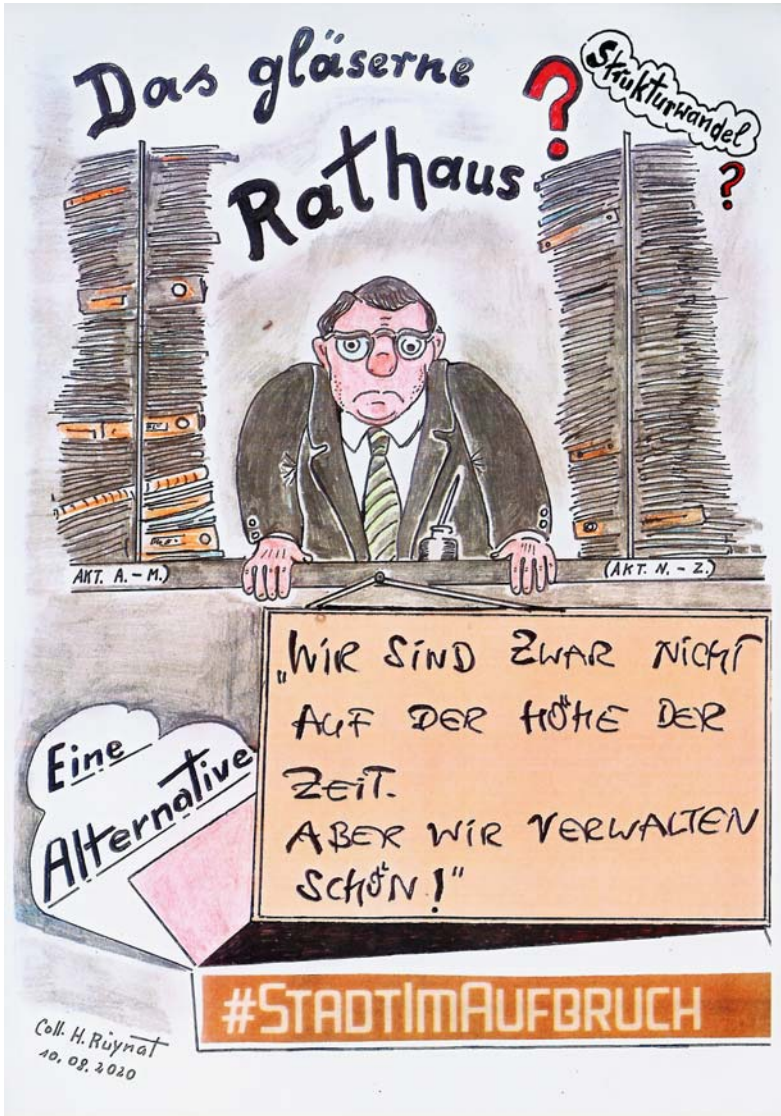 Das gläserne
Rathaus ?
Strukturwandel
?
AKT. A. - M.)
(AKT. N. - Z.)
„WIR SIND ZWAR NICHT
AUF DER HÖHE DER
ZEIT.
ABER WIR VERWALTEN
SCHÖN!"
Eine
Alternative
#STADTIMAUFBRUCH
Coll. H. Rüynat
10.08.2020